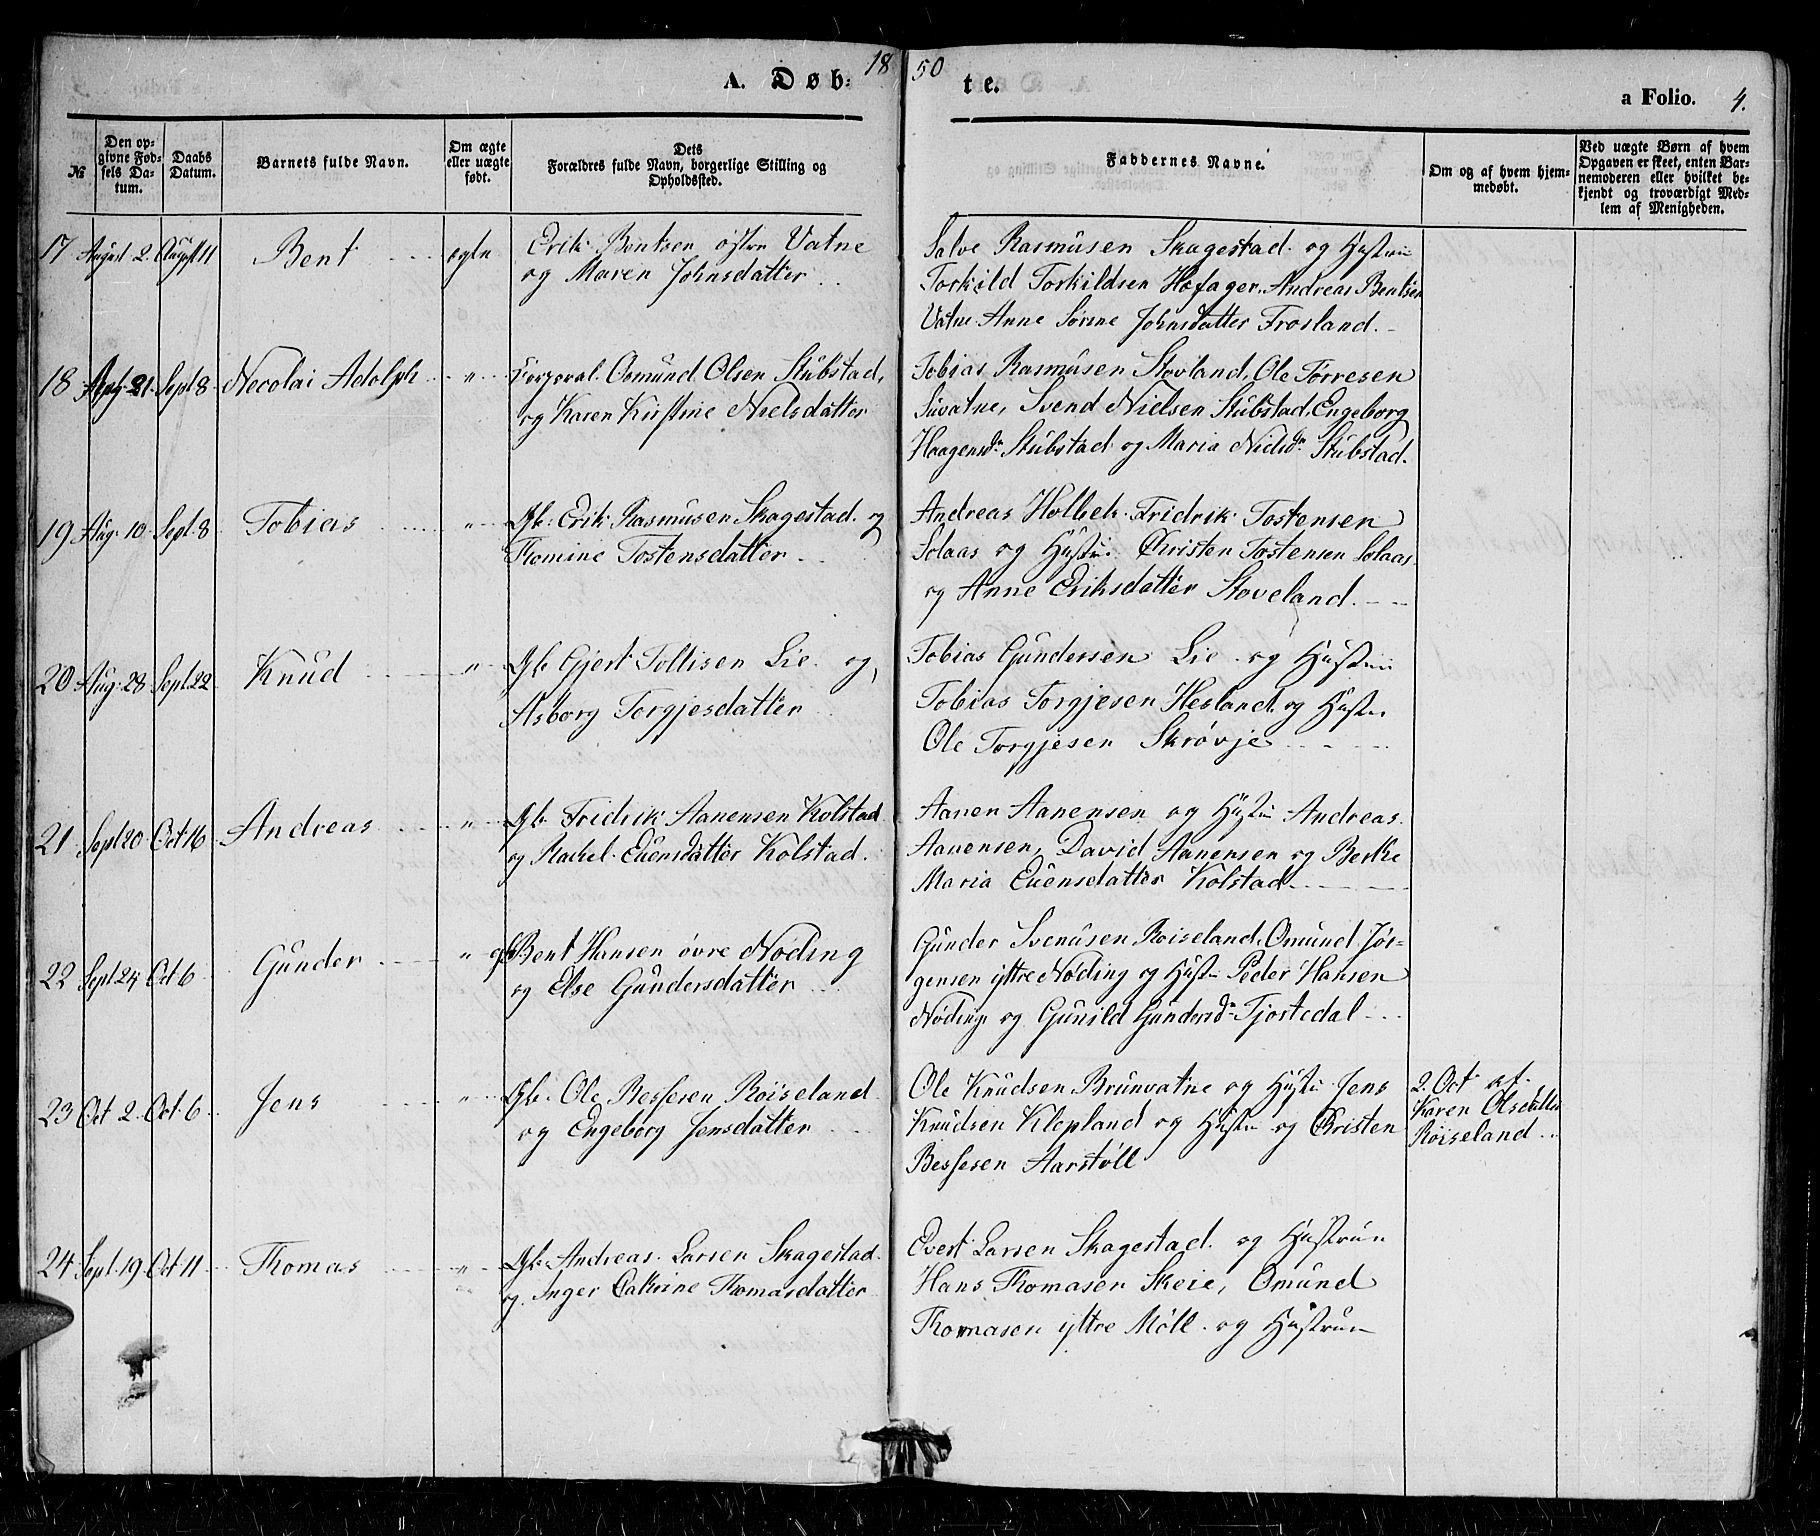 18 50
A. Døb: te.
a Folio. 4.
№
Den opgivne Fødsels Datum.
Daabs Datum.
Barnets fulde Navn.
Om ægte eller uægte født.
Dets Forældres fulde Navn, borgerlige Stilling og Opholdssted.
Faddernes Navne.
Om og af hvem hjemmedøbt.
Ved uægte Børn af hvem Opgaven er skeet, enten Barnemoderen eller hvilket bekjendt og troværdigt Medlem af Menigheden.
17 August 2. August 11 Bent ægte
Erik Bentsen østre Vatne
og Maren Johnsdatter
Salve Rasmusen Skagestad og Hustru
Torkild Torkildsen Høfager. Andreas Bentsen
Vatne Anne Sørine Johnsdatter Frosland.
18 Aug. 21. Sept 8 Necolai Adolph "
Corporal Osmund Olsen Stubstad,
og Karen Kirstine Nielsdatter
Tobias Rasmusen Stovland, Ole Torresen
Suvatne, Svend Nielsen Stubstad, Engeborg
Haagensdr Stubstad og Maria Nielsdr Stubstad.
19 Aug. 10. Sept. 8 Tobias "
Gb. Erik Rasmusen Skagestad og
Thomine Tostensdatter
Andreas Holbek. Fridrik Tostensen
Solaas og Hustru. Christen Tostensen Solaas
og Anne Eriksdatter Stoveland.
20 Aug. 28. Sept. 22 Knud "
Gb Gjert Tollisen Lie og
Asborg Torgjesdatter
Tobias Gundersen Lie og Hustru
Tobias Torgjesen Hesland og Hustru
Ole Torgjesen Skrøvje
21 Sept 20 Oct 16 Andreas "
Gb Fridrik Aanensen Kolstad
og Rachel Evensdatter Kolstad.
Aanen Aanensen og Hustru Andreas
Aanensen, David Aanensen og Berthe
Maria Evensdatter Kolstad
22 Sept 24 Oct. 6 Gunder "
Gb. Bent Hansen øvre Nøding
og Else Gundersdatter
Gunder Svenusen Roiseland, Omund Jør-
gensen ytre Nøding og Hustru Peder Hansen
Nøding og Gunild Gundersdr Tjortedal
23 Oct 2. Oct. 6 Jens "
Gb. Ole Bessesen Röiseland
og Engeborg Jensdatter
Ole Knudsen Brunvatne og Hustru Jens
Knudsen Klepland og Hustru og Christen
Bessesen Aarstøll
2. Oct af
Karen Olsdatter
Röiseland
24 Sept. 19 Oct. 11 Thomas "
Gb. Andreas Larsen Skagestad
og Inger Cathrine Thomasdatter
Evert Larsen Skagestad og Hustrue
Hans Thomasen Skeie, Omund
Thomasen ytre Møll og Hustrue